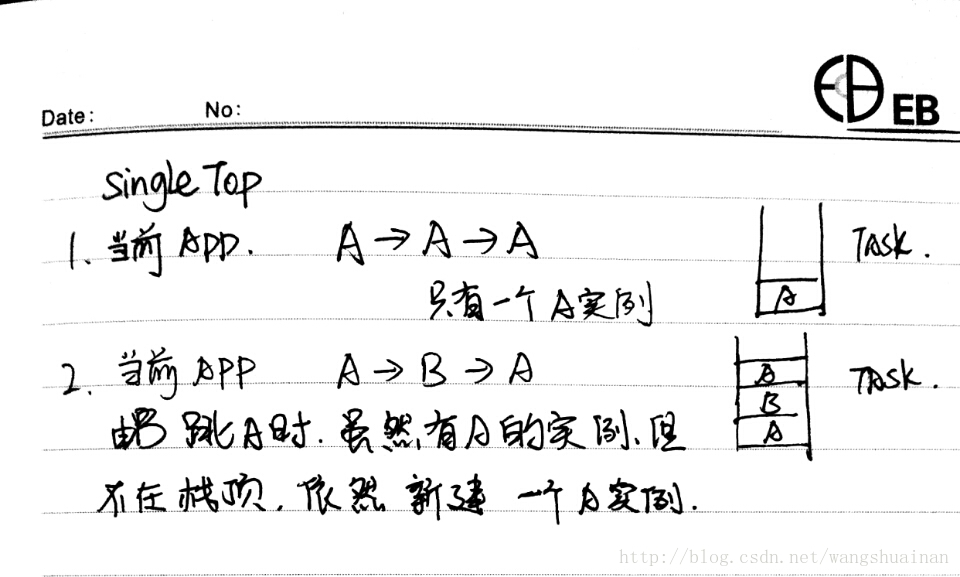 EB
Date: No:
single Top
1. 当前 APP. A → A → A TASK.
只有一个 A实例
A
2. 当前 APP A → B → A TASK.
A
B
A
由B 跳A时. 虽然有A的实例, 但
不在栈顶, 依然 新建 一个 A实例.
http://blog.csdn.net/wangshuainan